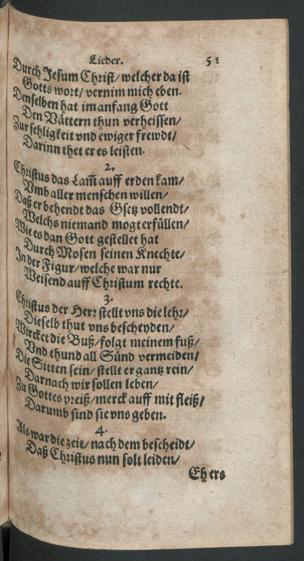 Lieder. 51
Durch Jesum Christ/ welcher da ist
Gotts wort/ vernim mich eben.
Denselben hat im anfang Gott
Den Vättern thun verheissen/
Zur sehligkeit vnd ewiger frewdt/
Darinn thet er es leisten.
2.
Christus das Lam̃ auff erden kam/
Vmb aller menschen willen/
Daß er behendt das Gsetz vollendt/
Welchs niemand mogt erfüllen/
Wie es dan Gott gestellet hat
Durch Mosen seinen Knechte/
In der Figur/ welche war nur
Weisend auff Christum rechte.
3.
Christus der Herr stellt vns die lehr/
Dieselb thut vns bescheyden/
Wircket die Buß/ folgt meinem fuß/
Vnd thund all Sünd vermeiden/
Die Sitten sein/ stelle er gantz rein/
Darnach wir sollen leben/
Zu Gottes preiß/ merck auff mit fleiß/
Darumb sind sie vns geben.
4.
Als war die zeit/ nach dem bescheidt/
Daß Christus nun solt leiden/
Eh ers